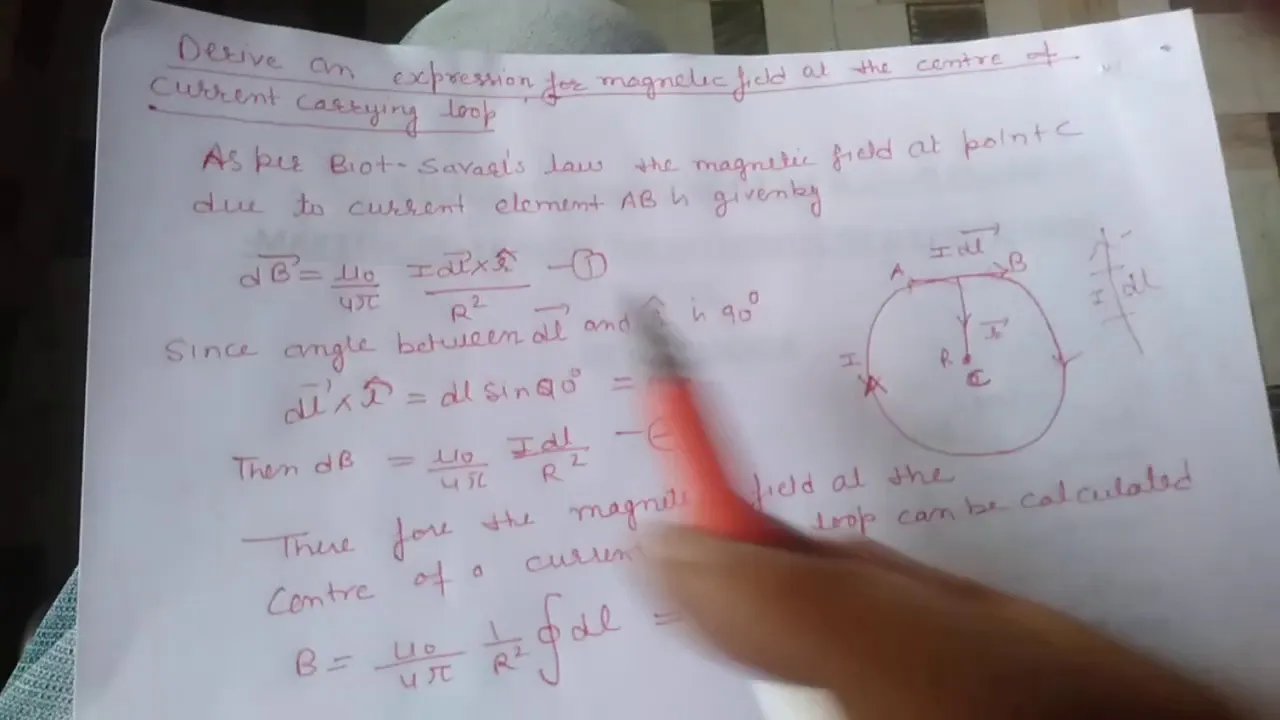 Derive an expression for magnetic field at the centre of
current carrying loop
As per Biot-Savart's law the magnetic field at point C
due to current element AB is given by
dB⃗ = μ₀/4π I dl⃗ × r̂/R² — ①
Since angle between dl⃗ and is 90°
dl⃗ × r̂ = dl sin 90° =
Then dB = μ₀/4π I dl/R² —
There fore the magnetic field at the
Centre of a current loop can be calculated
B = μ₀/4π 1/R² ∮ dl =
I dl⃗
A B
I dl
r⃗
R
I
C